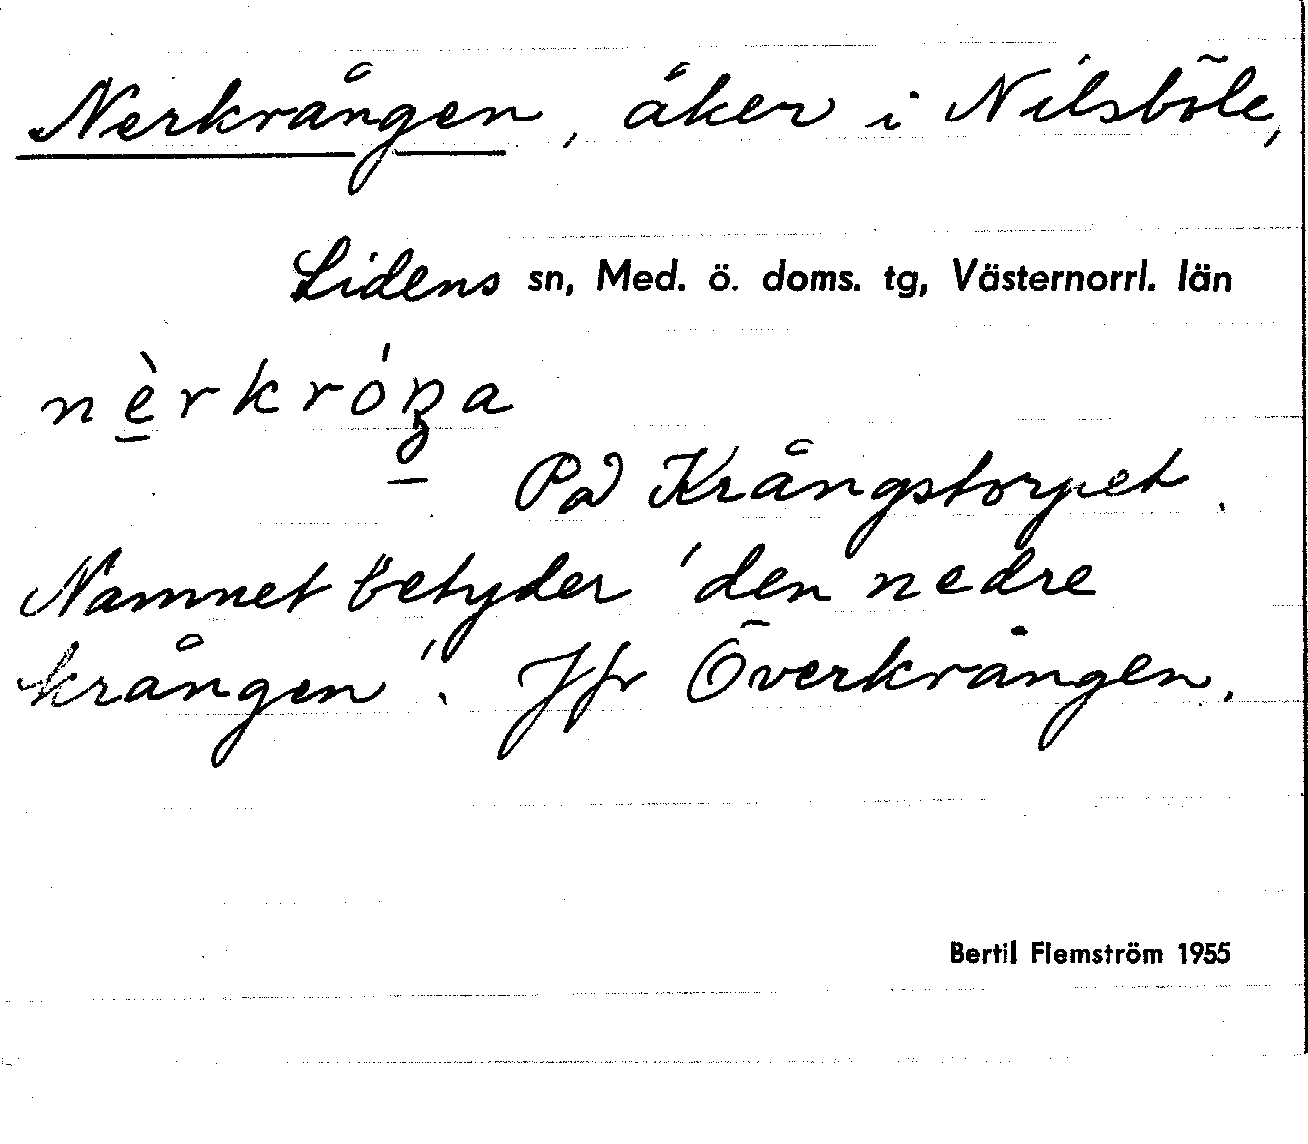 Nerkrången, åker i Nilsböle,
Lidens sn, Med. ö. doms. tg, Västernorrl. län
nèrkróŋa
På Krångstorpet.
Namnet betyder 'den nedre
krången'. Jfr Överkrången.
Bertil Flemström 1955